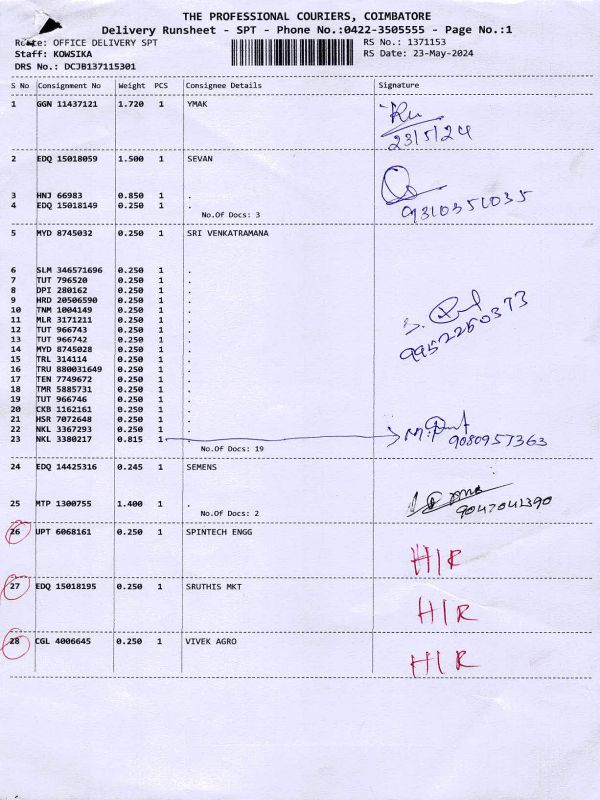 THE PROFESSIONAL COURIERS, COIMBATORE
Delivery Runsheet - SPT - Phone No.:0422-3505555 - Page No.:1
Route: OFFICE DELIVERY SPT RS No.: 1371153
Staff: KOWSIKA RS Date: 23-May-2024
DRS No.: DCJB137115301
S No Consignment No Weight PCS Consignee Details Signature
1 GGN 11437121 1.720 1 YMAK
23/5/24
2 EDQ 15018059 1.500 1 SEVAN
3 HNJ 66983 0.850 1 .
4 EDQ 15018149 0.250 1 . 9310351035
No.Of Docs: 3
5 MYD 8745032 0.250 1 SRI VENKATRAMANA
6 SLM 346571696 0.250 1 .
7 TUT 796520 0.250 1 .
8 DPI 280162 0.250 1 .
9 HRD 20506590 0.250 1 .
10 TNM 1004149 0.250 1 .
11 MLR 3171211 0.250 1 .
12 TUT 966743 0.250 1 .
13 TUT 966742 0.250 1 .
14 MYD 8745028 0.250 1 . 9952250373
15 TRL 314114 0.250 1 .
16 TRU 880031649 0.250 1 .
17 TEN 7749672 0.250 1 .
18 TMR 5885731 0.250 1 .
19 TUT 966746 0.250 1 .
20 CKB 1162161 0.250 1 .
21 HSR 7072648 0.250 1 .
22 NKL 3367293 0.250 1 .
23 NKL 3380217 0.815 1 . 9080957363
No.Of Docs: 19
24 EDQ 14425316 0.245 1 SEMENS
25 MTP 1300755 1.400 1 . 9047041390
No.Of Docs: 2
26 UPT 6068161 0.250 1 SPINTECH ENGG
H/R
27 EDQ 15018195 0.250 1 SRUTHIS MKT
H/R
28 CGL 4006645 0.250 1 VIVEK AGRO
H/R